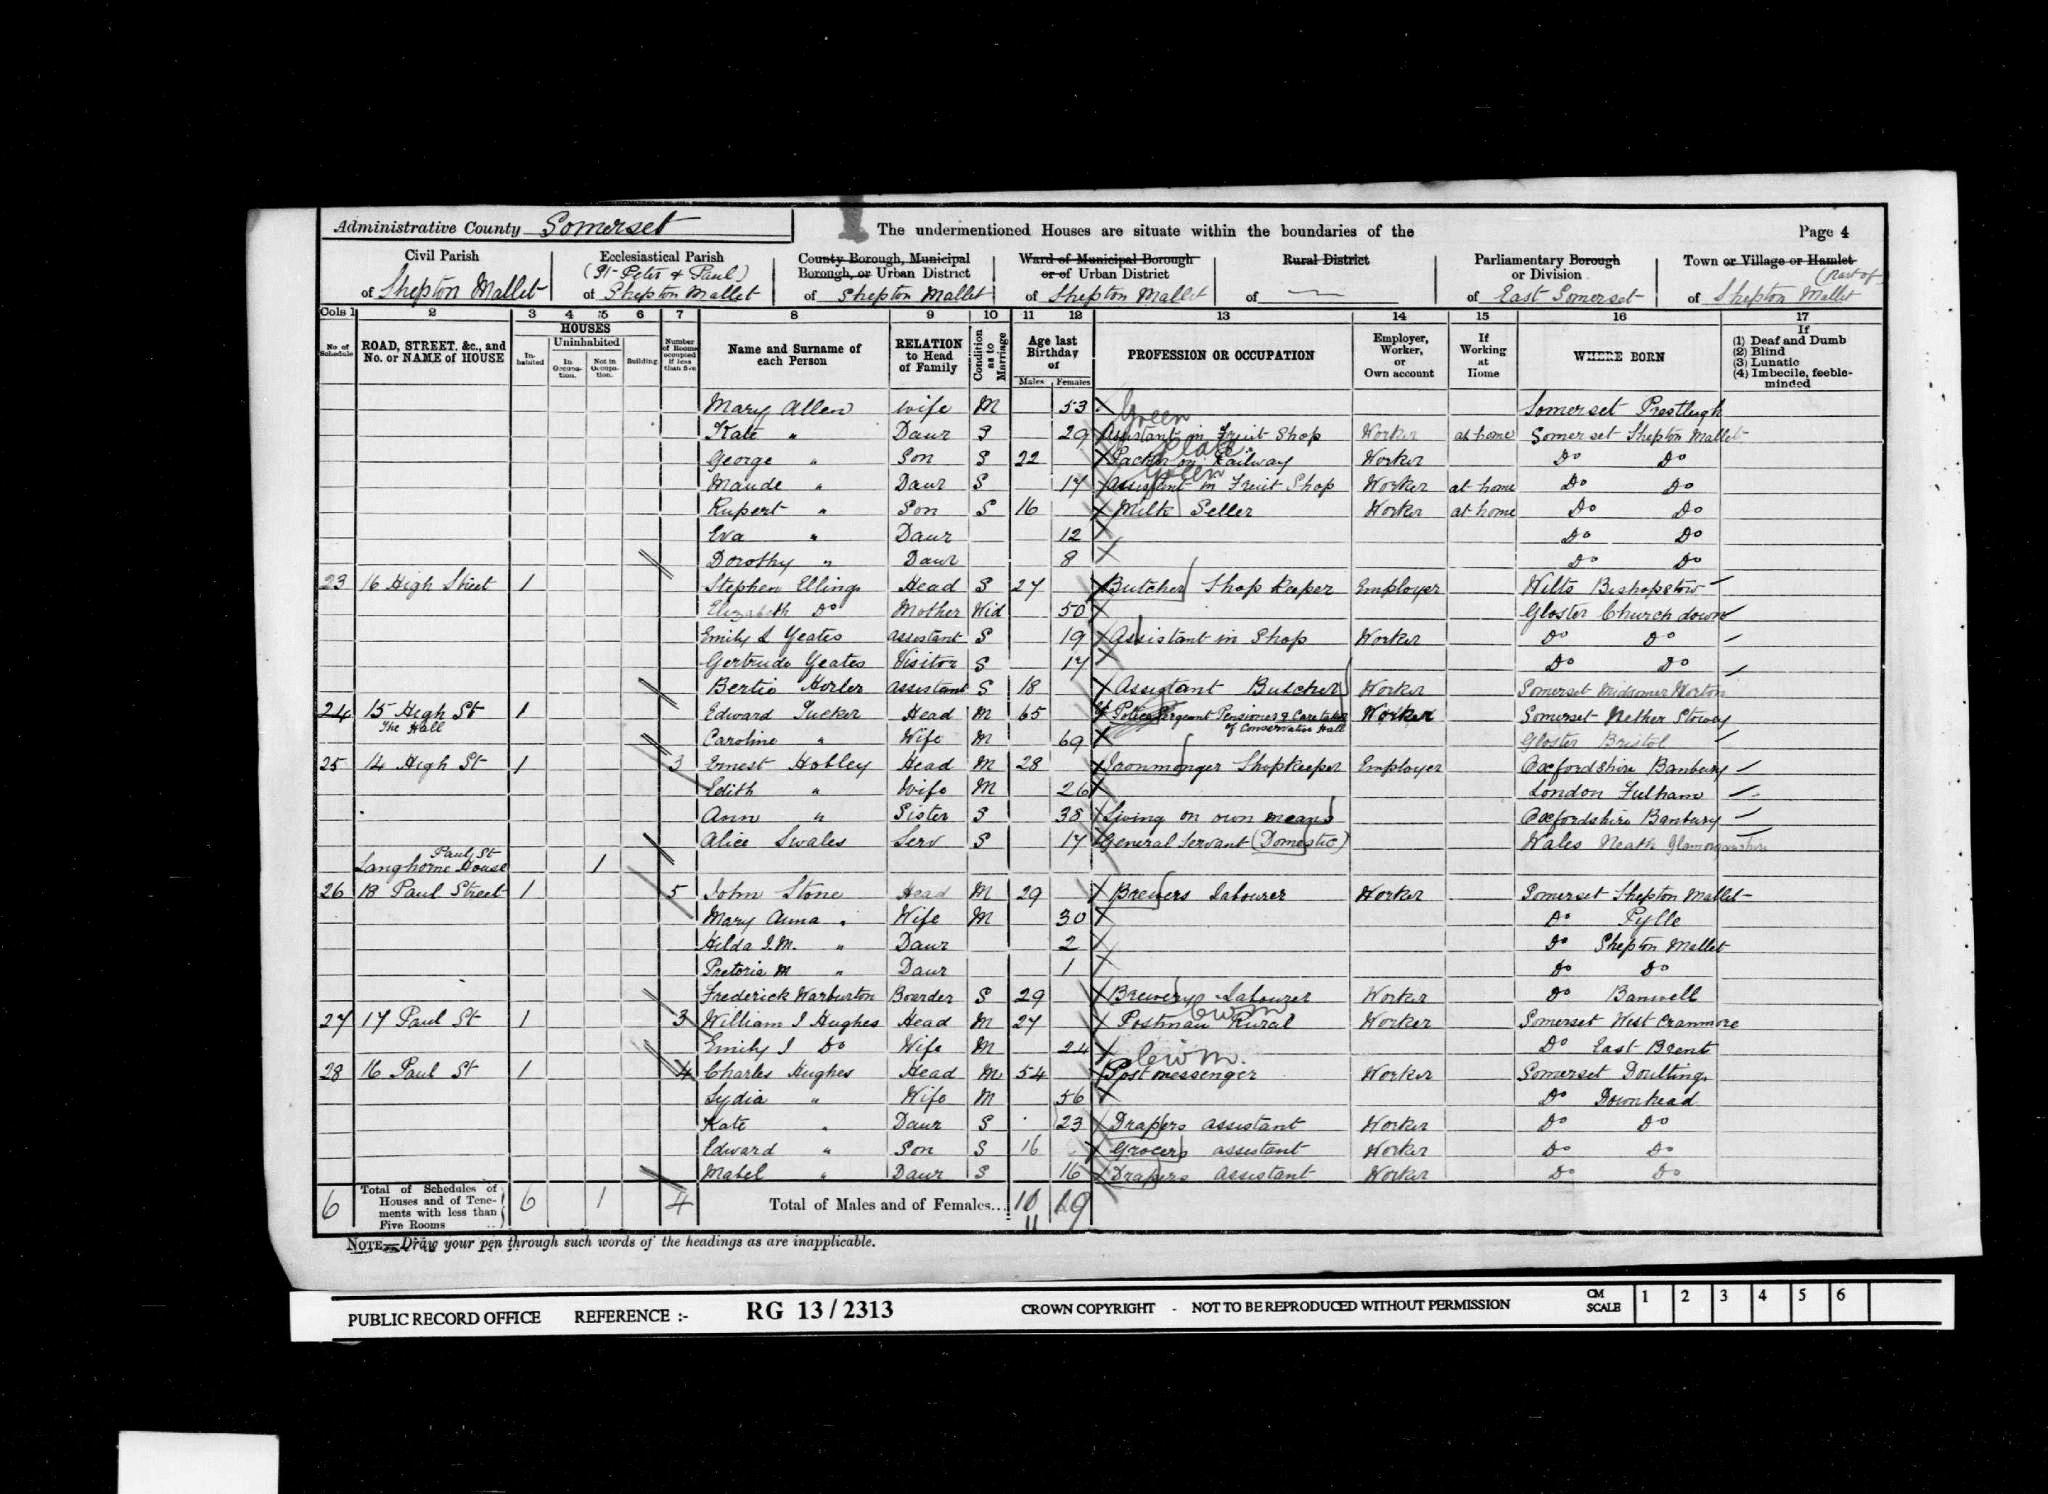 Administrative County Somerset
The undermentioned Houses are situate within the boundaries of the
Page 4
Civil Parish of Shepton Mallet
Ecclesiastical Parish (St Peter & Paul) of Shepton Mallet
County Borough, Municipal Borough, or Urban District of Shepton Mallet
Ward of Municipal Borough or of Urban District of Shepton Mallet
Rural District of —
Parliamentary Borough or Division of East Somerset
Town or Village or Hamlet (part of) of Shepton Mallet
Cols 1 2 3 4 5 6 7 8 9 10 11 12 13 14 15 16 17
No. of Schedule
ROAD, STREET, &c., and No. or NAME of HOUSE
HOUSES
Inhabited
Uninhabited
In Occupation.
Not in Occupation.
Building.
Number of Rooms occupied if less than five
Name and Surname of each Person
RELATION to Head of Family
Condition as to Marriage
Age last Birthday of
Males Females
PROFESSION OR OCCUPATION
Employer, Worker, or Own account
If Working at Home
WHERE BORN
If (1) Deaf and Dumb (2) Blind (3) Lunatic (4) Imbecile, feeble-minded
Mary Allen Wife M 53 Somerset Prestleigh
Green
Kate " Daur S 29 Assistant in Fruit Shop Worker at home Somerset Shepton Mallet
George " Son S 22 Packer on Railway Worker Do Do
Green
Maude " Daur S 17 Assistant in Fruit Shop Worker at home Do Do
Rupert " Son S 16 Milk Seller Worker at home Do Do
Eva " Daur 12 Do Do
Dorothy " Daur 8 Do Do
23 16 High Street 1 Stephen Elling Head S 27 Butcher Shop Keeper Employer Wilts Bishopstow
Elizabeth Do Mother Wid 50 Gloster Church down
Emily S Yeates assistant S 19 Assistant in Shop Worker Do Do
Gertrude Yeates Visitor S 17 Do Do
Bertie Horler assistant S 18 Assistant Butcher Worker Somerset Midsomer Norton
24 15 High St 1 Edward Tucker Head M 65 Police Sergeant Pensioner & Caretaker Worker Somerset Nether Stowey
The Hall of Conservative Hall
Caroline " Wife M 69 Gloster Bristol
25 14 High St 1 3 Ernest Hobley Head M 28 Ironmonger Shopkeeper Employer Oxfordshire Banbury
Edith " Wife M 26 London Fulham
Ann " Sister S 38 Living on own means Oxfordshire Banbury
Alice Swales Serv S 17 General Servant (Domestic) Wales Neath Glamorganshire
Paul St
Langhorne House 1
26 18 Paul Street 1 5 John Stone Head M 29 Brewers Labourer Worker Somerset Shepton Mallet
Mary Anna " Wife M 30 Do Pylle
Hilda I.M. " Daur 2 Do Shepton Mallet
Pretoria M " Daur 1 Do Do
Frederick Warburton Boarder S 29 Brewery Labourer Worker Do Banwell
27 17 Paul St 1 3 William I Hughes Head M 27 Postman Rural Worker Somerset West Cranmore
Emily I Do Wife M 24 Do East Brent
28 16 Paul St 1 4 Charles Hughes Head M 54 Post messenger Worker Somerset Doulting
Lydia " Wife M 56 Do Downhead
Kate " Daur S 23 Drapers assistant Worker Do Do
Edward " Son S 16 Grocers assistant Worker Do Do
Mabel " Daur S 16 Drapers Assistant Worker Do Do
6 Total of Schedules of Houses and of Tenements with less than Five Rooms 6 1 4 Total of Males and of Females... 10 19
11
NOTE—Draw your pen through such words of the headings as are inapplicable.
PUBLIC RECORD OFFICE REFERENCE :- RG 13/2313 CROWN COPYRIGHT - NOT TO BE REPRODUCED WITHOUT PERMISSION
CM SCALE 1 2 3 4 5 6